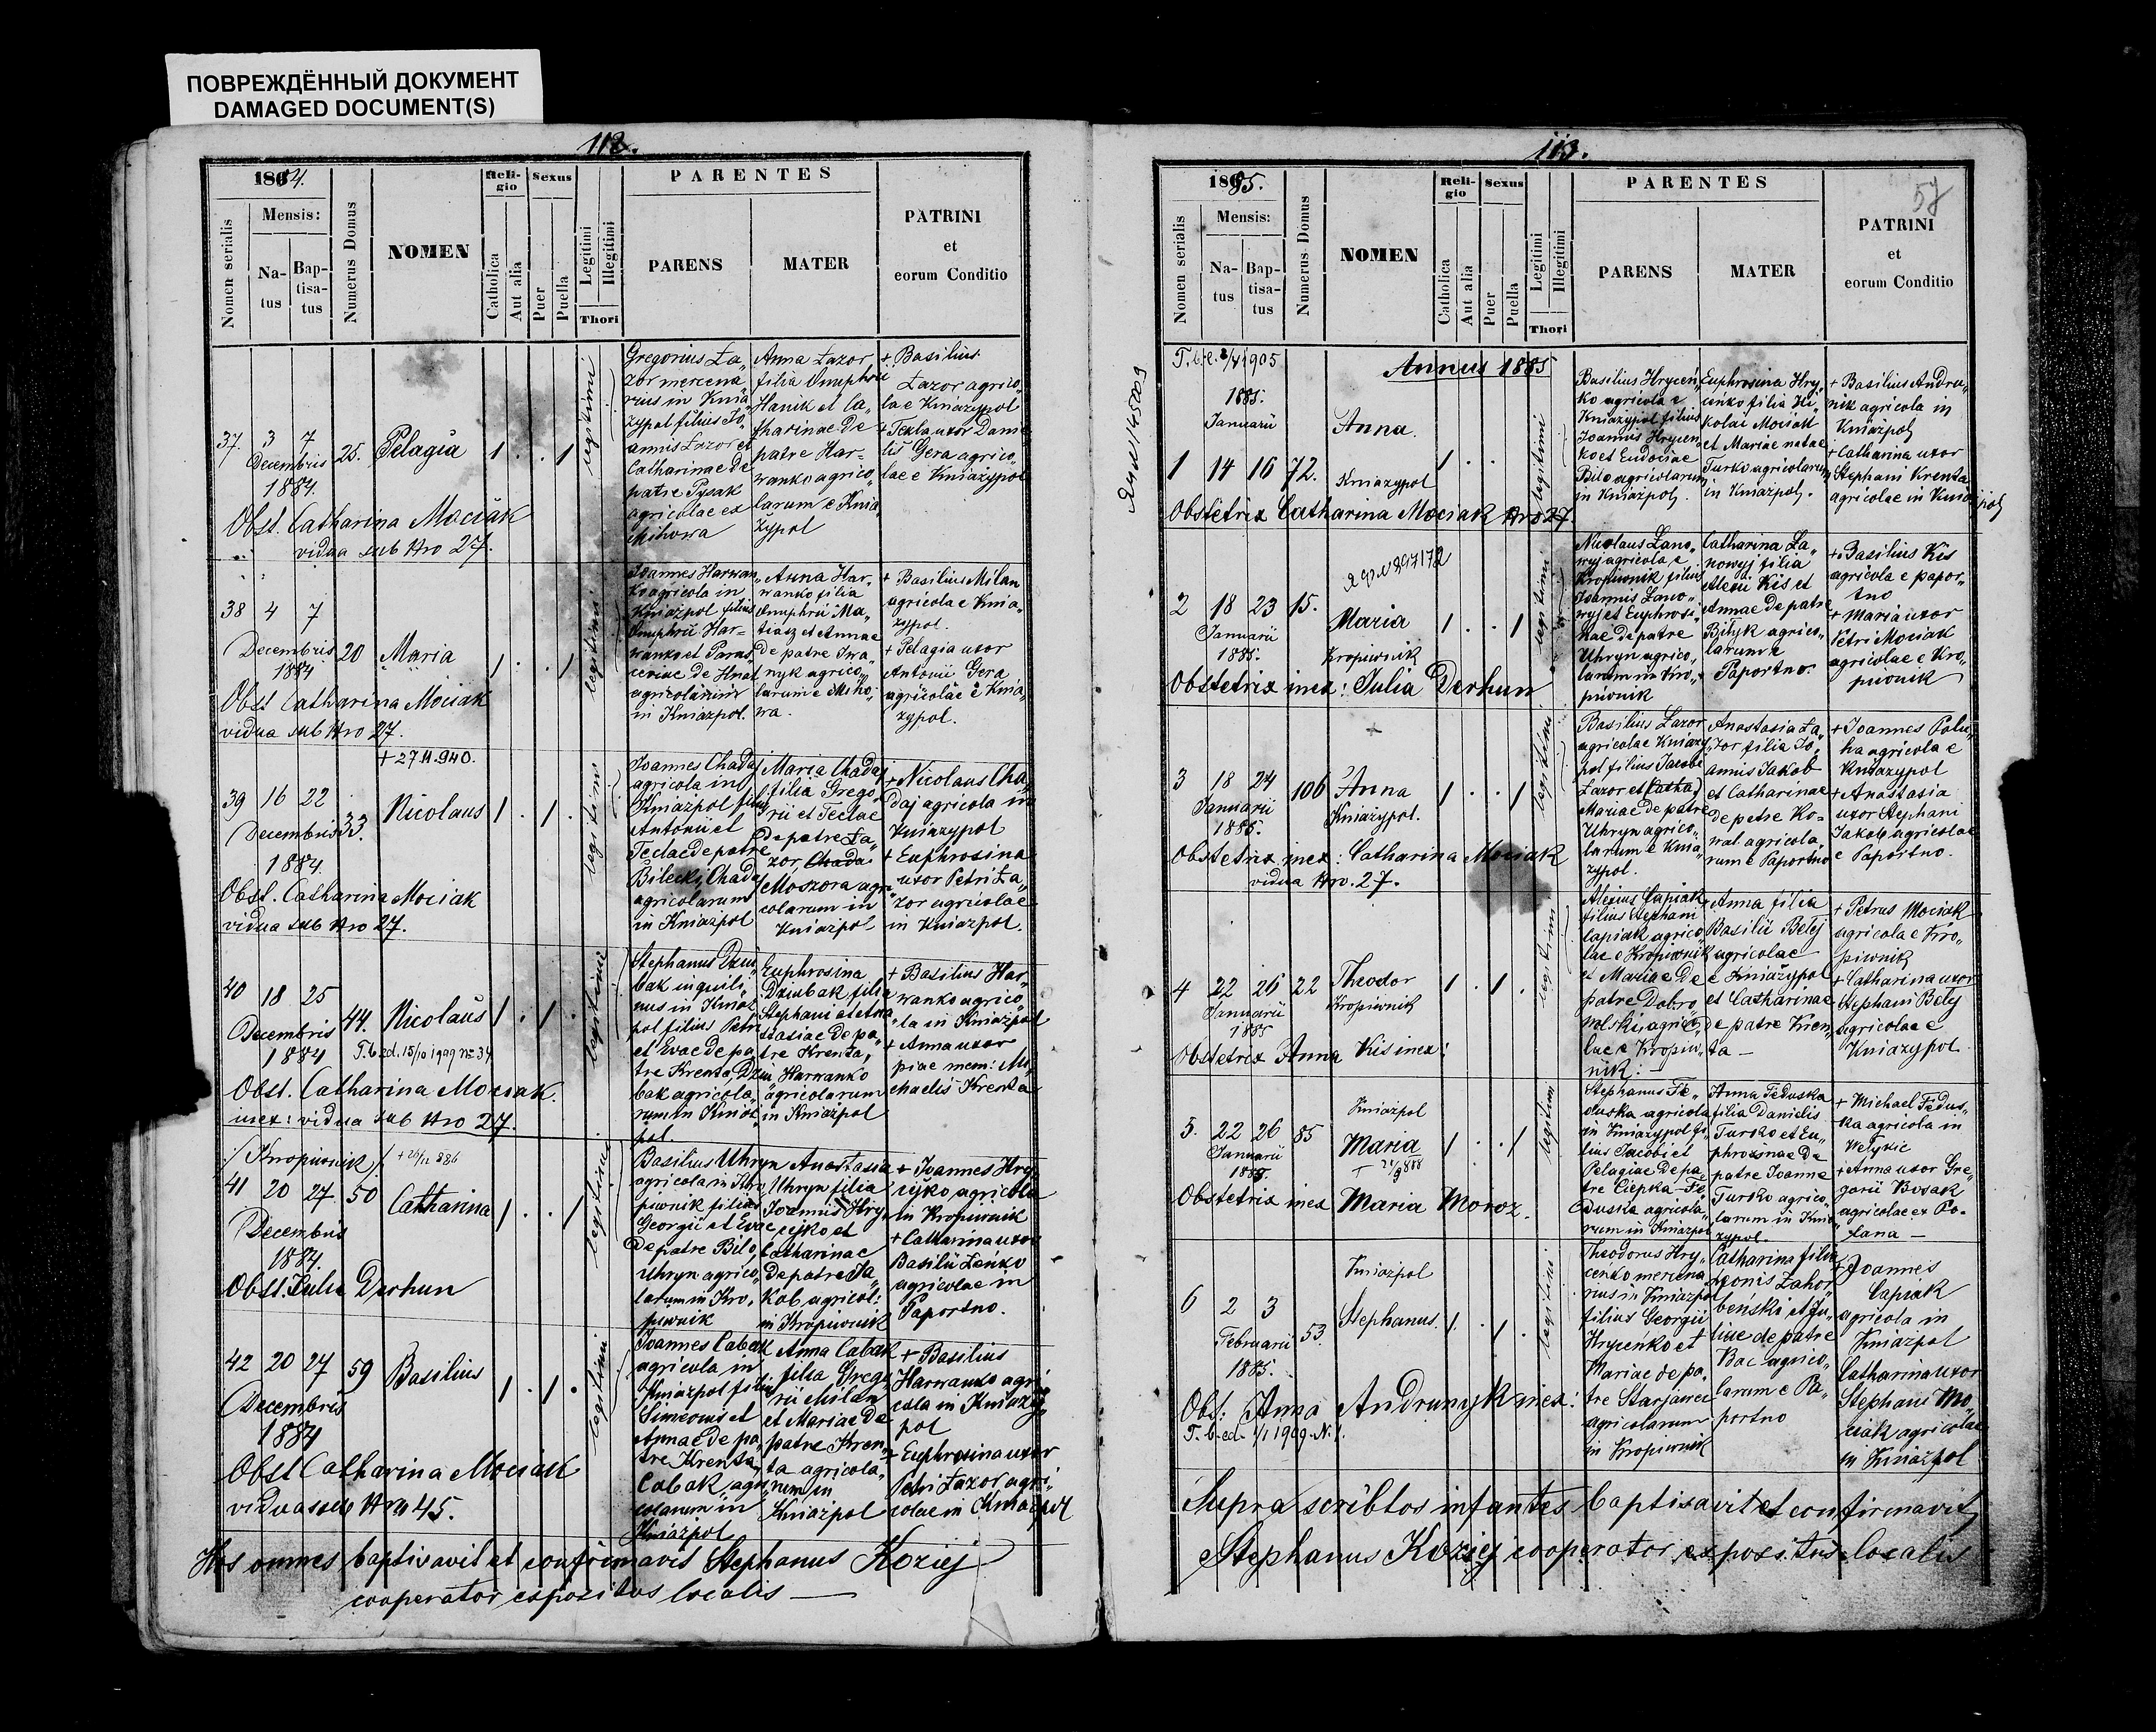 ПОВРЕЖДЁННЫЙ ДОКУМЕНТ
DAMAGED DOCUMENT(S)
112.
1884.
Nomen serialis
Mensis:
Natus
Baptisatus
Numerus Domus
NOMEN
Religio
Catholica
Aut alia
Sexus
Puer
Puella
Legitimi
Illegitimi
Thori
PARENTES
PARENS
MATER
PATRINI
et
eorum Conditio
37. 3 7
Decembris
1884.
25. Pelagia 1 . . 1 legitimi
Gregorius Ła„
zor mercena„
rius in Knia„
zypol filius Jo„
annis Łazor et
Catharinae de
patre Pysak
agricolae ex
Michowa
Anna Łazor
filia Onuphrii
Hanik et Ca„
tharinae de
patre Har=
wanko agrico„
larum e Knia„
zypol
+ Basilius
Łazor agrico„
la e Kniazypol
+ Tekla uxor Dani„
lis Gera agrico„
lae e Kniazypol
Obst. Catharina Mociak
vidua sub Nro 27.
38 4 7
Decembris
1884
20 Maria 1 . . 1 legitimi
Joannes Harwan„
ko agricola in
Kniazpol filius
Onuphrii Har=
wanko et Paras„
ceviae de Hnat
agricolarum
in Kniazpol.
Anna Har„
wanko filia
Onuphrii Ma„
tiasz et Annae
de patre Iwa„
nyk agrico„
larum e Micho„
wa.
+ Basilius Milan
agricola e Knia„
zypol.
+ Pelagia uxor
Antonii Gera
agricolae e Knia„
zypol.
Obst Catharina Mociak
vidua sub Nro 27.
39 16 22
Decembris
1884.
33. Nicolaus 1 . 1 . legitimi
Joannes Chadaj
agricola in
Kniazpol filius
Antonii et
Teclae de patre
Bilecki Chadaj
agricolarum
in Kniazpol
Maria Chadaj
filia Grego„
rii et Teclae
de patre Ła„
zor Chada
Moszora agri„
colarum in
Kniazpol
+ Nicolaus Cha„
daj agricola in
Kniazypol
+ Euphrosina
uxor Petri Ła„
zor agricolae
in Kniazpol.
Obst. Catharina Mociak
vidua sub Nro 27.
40 18 25
Decembris
1884
44. Nicolaus 1 . 1 . legitimi
T. b. ed. 15/10 1909 No 34
Stephanus Dziu„
bak inquili„
nus in Kniaz„
pol filius Petri
et Evae de pa„
tre Krenta Dziu„
bak agricola„
rum in Kniaz„
pol.
Euphrosina
Dziubak filia
Stephani et Ana„
stasiae de pa„
tre Krenta,
Harwanko
agricolarum
in Kniazpol
+ Basilius Har„
wanko agrico„
la in Kniazpol
+ Anna uxor
piae mem: Mi„
chaelis Krenta
Obst. Catharina Mociak.
inex: vidua sub Nro 27.
/: Kropiwnik :/
41 20 27 50 Catharina 1 . . 1 legitimi
Decembris
1884.
Basilius Uhryn
agricola in Kro„
piwnik filius
Georgii et Evae
de patre Bilo,
Uhryn agrico„
larum in Kro„
piwnik
Anastasia
Uhryn filia
Joannis Hry„
cyko et
Catharinae
de patre Ja„
kob agricol:
in Kropiwnik
+ Joannes Hry„
cyko agricola
in Kropiwnik
+ Catharina uxor
Basilii Zeńko
agricolae in
Paportno.
Obst. Julia Derhun
42 20 27 59 Basilius 1 . 1 . legitimi
Decembris
1884
Joannes Cabak
agricola in
Kniazpol filius
Simeonis et
Annae de pa„
tre Krenta,
Cabak agri„
colarum in
Kniazpol
Anna Cabak
filia Grego„
rii Milan
et Mariae de
patre Kren„
ta agricola„
rum in
Kniazpol
+ Basilius
Harwanko agri„
cola in Kniazy„
pol
+ Euphrosina uxor
Petri Łazor agri„
colae in Kniazpol
Obst Catharina Mociak
vidua sub Nro 45.
Hos omnes baptisavit et confirmavit Stephanus Koziej
cooperator expositus localis
113.
57
1885.
Nomen serialis
Mensis:
Natus
Baptisatus
Numerus Domus
NOMEN
Religio
Catholica
Aut alia
Sexus
Puer
Puella
Legitimi
Illegitimi
Thori
PARENTES
PARENS
MATER
PATRINI
et
eorum Conditio
Annus 1885
1885.
Januarii
1 14 16 72. Anna.
Kniazypol
legitimi
Basilius Hryceń„
ko agricola e
Kniazypol filius
Joannis Hrycen„
ko et Eudociae
Bilo agricolarum
in Kniazpolj.
Euphrosina Hry„
ceńko filia Ni„
kolai Mociak
et Mariae natae
Turko agricolarum
in Kniazpolj.
+ Basilius Andru„
nik agricola in
Kniazpolj
+ Catharina uxor
Stephani Krenta
agricolae in Kniazpolj
Obstetrix Catharina Mociak Nro 27.
2 18 23 15. Maria 1 . . 1 legitimi
Januarii
1885.
Kropiwnik
Nicolaus Lano„
wyj agricola e
Kropiwnik filius
Joannis Lano„
wyj et Euphrosi„
nae de patre
Uhryn agrico„
larum in Kro„
piwnik
Catharina La„
nowyj filia
Alexii Kis et
Annae de patre
Bityk agrico„
larum e
Paportno.
+ Basilius Kis
agricola e papor„
tno
+ Maria uxor
Petri Mociak
agricolae e Kro„
piwnik
Obstetrix inex: Julia Derhun
3 18 24 106 Anna 1 . . 1 legitimi
Januarii
1885.
Kniazypol.
Basilius Łazor
agricola e Kniazy„
pol filius Jacobi
Łazor et Catha
Mariae de patre
Uhryn agrico„
larum e Knia„
zypol.
Anastasia Ła„
zor filia Jo„
annis Jakob
et Catharinae
de patre Ko=
nal agricola„
rum e Paportno
+ Joannes Polu„
ha agricola e
Kniazypol
+ Anastasia
uxor Stephani
Jakob agricolae
e Paportno.
Obstetrix inex: Catharina Mociak
vidua Nro. 27.
4 22 26 22 Theodor 1 . 1 . legitimi
Januarii
1885
Kropiwnik
Alexius Capiak
filius Stephani
Capiak agrico„
lae e Kropiwnik
et Mariae de
patre Dobro„
wolski, agrico„
lae e Kropiw„
nik: –
Anna filia
Basilii Betej
agricolae
e Kniażypol
et Catharinae
de patre Kren„
ta –
+ Petrus Mociak
agricola e Kro„
piwnik
+ Catharina uxor
Stephani Betej
agricolae e
Kniazypol.
Obstetrix Anna Kis inex:
5. 22 26 85 Kniazpol
Maria 1 . . 1 legitimi
Januarii
1885.
Stephanus Fe„
duska agricola
in Kniazypol fi„
lius Jacobi et
Pelagiae de pa„
tre Ciepka – Fe„
duska agricola„
rum in Kniazpol
Anna Feduska
filia Danielis
Tursko et Eu„
phrosinae de
patre Joanne
Tursko agrico„
larum in Knia„
zypol.
+ Michael Fedus„
ka agricola in
Wetykie
+ Anna uxor Gre„
gorii Bosak
agricolae ex Po„
lana –
Obstetrix inex Maria Moroz.
6 2 3 Kniazpol
Februarii
1885.
53. Stephanus. 1 . 1 . legitimi
Theodorus Hry„
ceńko mercena„
rius in Kniazpol
filius Georgii
Hryceńko et
Mariae de pa„
tre Starjawec
agricolarum
in Kropiwnik
Catharina filia
Leonis Zahor„
beński et Ju„
liae de patre
Bac agrico„
larum e Pa„
portno
+ Joannes
Capiak
agricola in
Kniazpol
Catharina uxor
Stephani Mo„
ciak agricolae
in Kniazpol
Obst: Anna Andrunyk inex:
T. b. ed. 1/1 1909. N. 1.
Supra scribtos infantes baptisavit et confirmavit
Stephanus Koziej cooperator expositus localis